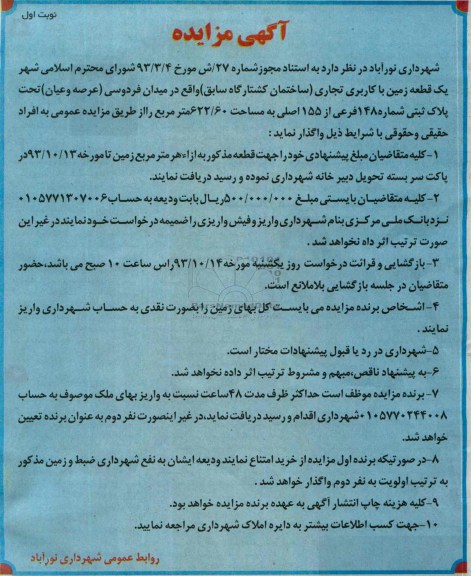 نوبت اول
آگهی مزایده
شهرداری نورآباد در نظر دارد به استناد مجوز شماره ۲۷/ش مورخ ۹۳/۳/۴ شورای محترم اسلامی شهر
یک قطعه زمین با کاربری تجاری (ساختمان کشتارگاه سابق) واقع در میدان فردوسی (عرصه وعیان) تحت
پلاک ثبتی شماره ۱۴۸فرعی از ۱۵۵ اصلی به مساحت ۶۲۲/۶۰متر مربع رااز طریق مزایده عمومی به افراد
حقیقی وحقوقی با شرایط ذیل واگذار نماید :
۱-کلیه متقاضیان مبلغ پیشنهادی خود را جهت قطعه مذکور به ازاء هر متر مربع زمین تا مورخه ۹۳/۱۰/۱۳در
پاکت سر بسته تحویل دبیر خانه شهرداری نموده و رسید دریافت نمایند.
۲-کلیه متقاضیان بایستی مبلغ ۵۰۰/۰۰۰/۰۰۰ریال بابت ودیعه به حساب ۰۱۰۵۷۷۱۳۰۷۰۰۶
نزد بانک ملی مرکزی بنام شهرداری واریز وفیش واریزی را ضمیمه درخواست خود نمایند در غیر این
صورت ترتیب اثر داده نخواهد شد .
۳- بازگشایی و قرائت درخواست روز یکشنبه مورخه ۹۳/۱۰/۱۴راس ساعت ۱۰ صبح می باشد،حضور
متقاضیان در جلسه بازگشایی بلامانع است.
۴-اشخاص برنده مزایده می بایست کل بهای زمین را بصورت نقدی به حساب شهرداری واریز
نمایند .
۵-شهرداری در رد یا قبول پیشنهادات مختار است.
۶-به پیشنهاد ناقص،مبهم و مشروط ترتیب اثر داده نخواهد شد.
۷- برنده مزایده موظف است حداکثر ظرف مدت ۴۸ساعت نسبت به واریز بهای ملک موصوف به حساب
۰۱۰۵۷۷۰۲۴۴۰۰۸شهرداری اقدام و رسید دریافت نماید،در غیر اینصورت نفر دوم به عنوان برنده تعیین
خواهد شد.
۸-در صورتیکه برنده اول مزایده از خرید امتناع نمایند ودیعه ایشان به نفع شهرداری ضبط و زمین مذکور
به ترتیب اولویت به نفر دوم واگذار خواهد شد .
۹-کلیه هزینه چاپ انتشار آگهی به عهده برنده مزایده خواهد بود.
۱۰-جهت کسب اطلاعات بیشتر به دایره املاک شهرداری مراجعه نمایید.
روابط عمومی شهرداری نورآباد